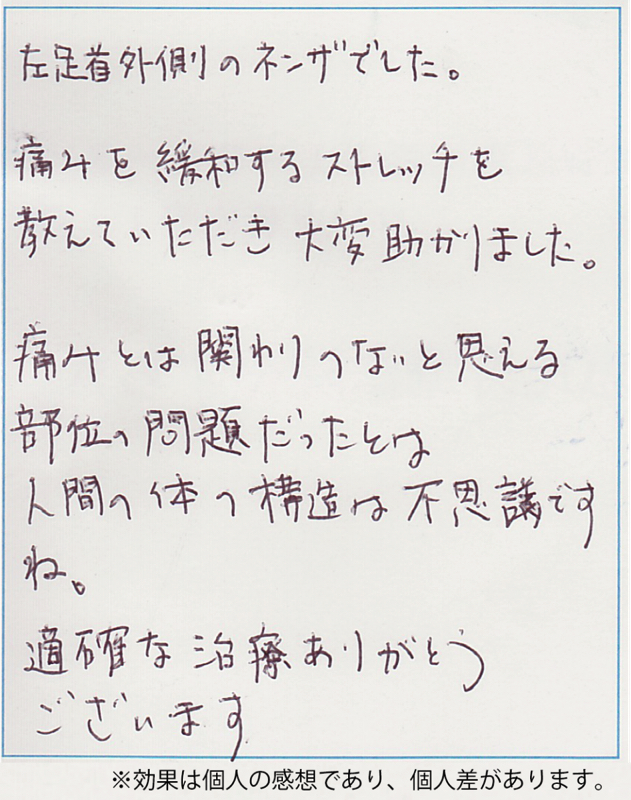 左足首外側のネンザでした。
痛みを緩和するストレッチを
教えていただき大変助かりました。
痛みとは関わりのないと思える
部位の問題だったとは
人間の体の構造は不思議です
ね。
適確な治療ありがとう
ございます
※効果は個人の感想であり、個人差があります。